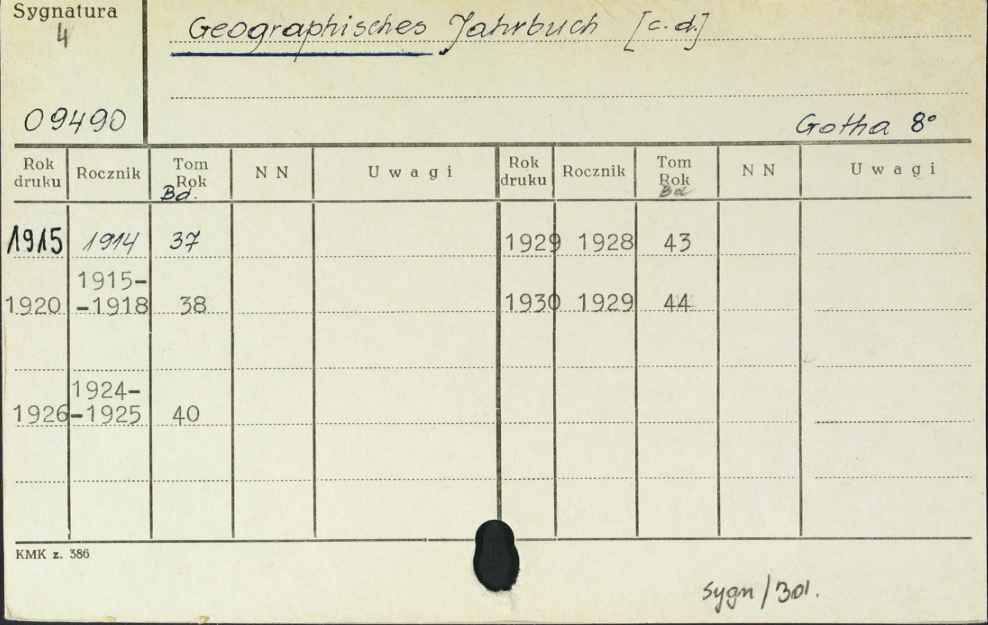 Sygnatura
4
Geographisches Jahrbuch [c.d.]
09490
Gotha 8°
Rok druku Rocznik Tom Rok Bd. NN Uwagi Rok druku Rocznik Tom Rok Bd NN Uwagi
1915 1914 37 1929 1928 43
1915-
1920 -1918 38 1930 1929 44
1924-
1926 -1925 40
KMK z. 386
Sygn/301.